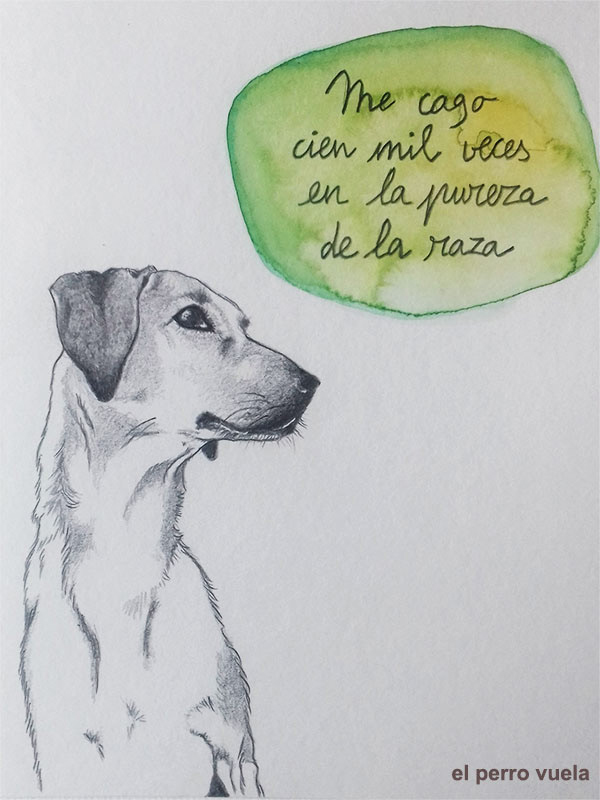 Me cago
cien mil veces
en la pureza
de la raza
el perro vuela